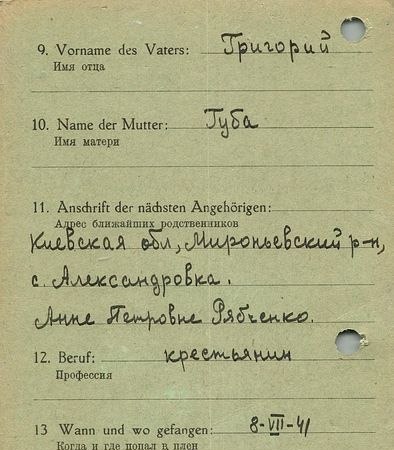 9. Vorname des Vaters: Григорий
Имя отца
10. Name der Mutter: Губа
Имя матери
11. Anschrift der nächsten Angehörigen:
Адрес ближайших родственников
Киевская обл, Мироньевский р-н,
с. Александровка.
Анне Петровне Рябченко.
12. Beruf: крестьянин
Профессия
13 Wann und wo gefangen: 8-VII-41
Когда и где попал в плен